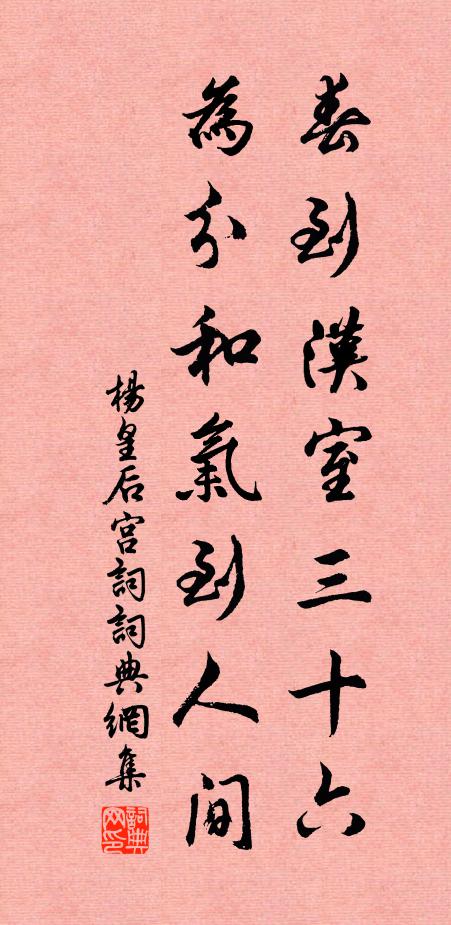 春到漢室三十六
為分和氣到人間
楊皇后宮詞詞典網集
詞典网印